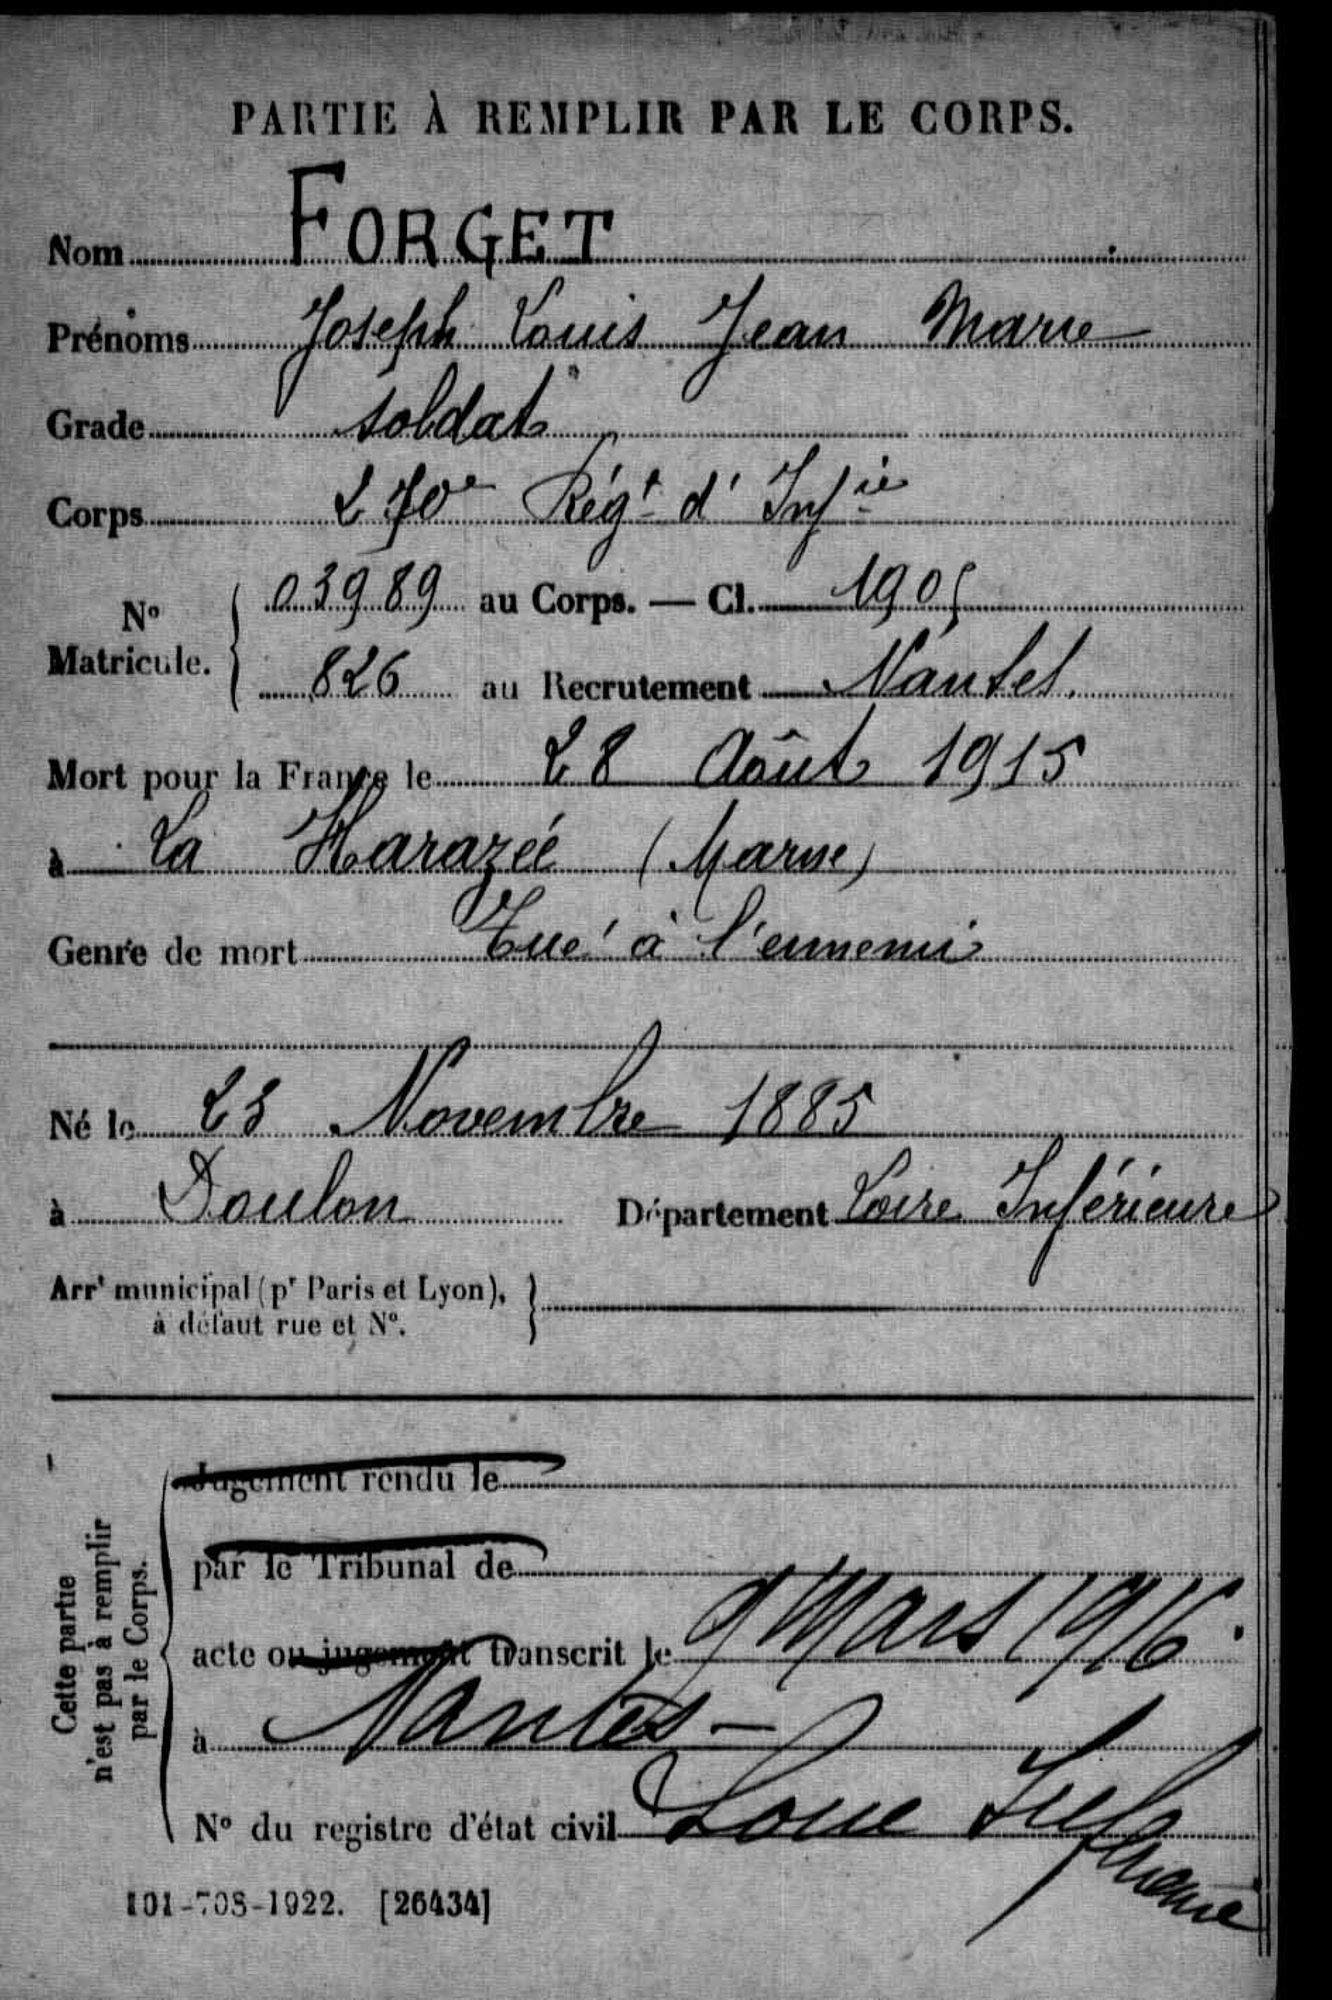 PARTIE À REMPLIR PAR LE CORPS.
Nom FORGET
Prénoms Joseph Louis Jean Marie
Grade soldat
Corps 270e Régt d' Infie
No Matricule. { 03989 au Corps. — Cl. 1905
826 au Recrutement Nantes.
Mort pour la France le 28 Août 1915
à La Harazée (Marne)
Genre de mort Tué à l'ennemi
Né le 23 Novembre 1885
à Doulon Département Loire Inférieure
Arrt municipal (pr Paris et Lyon), }
à défaut rue et No.
Cette partie
n'est pas à remplir
par le Corps.
Jugement rendu le
par le Tribunal de
acte ou jugement transcrit le 9 Mars 1916.
à Nantes -
No du registre d'état civil Loire Inférieure
101-708-1922. [26434]